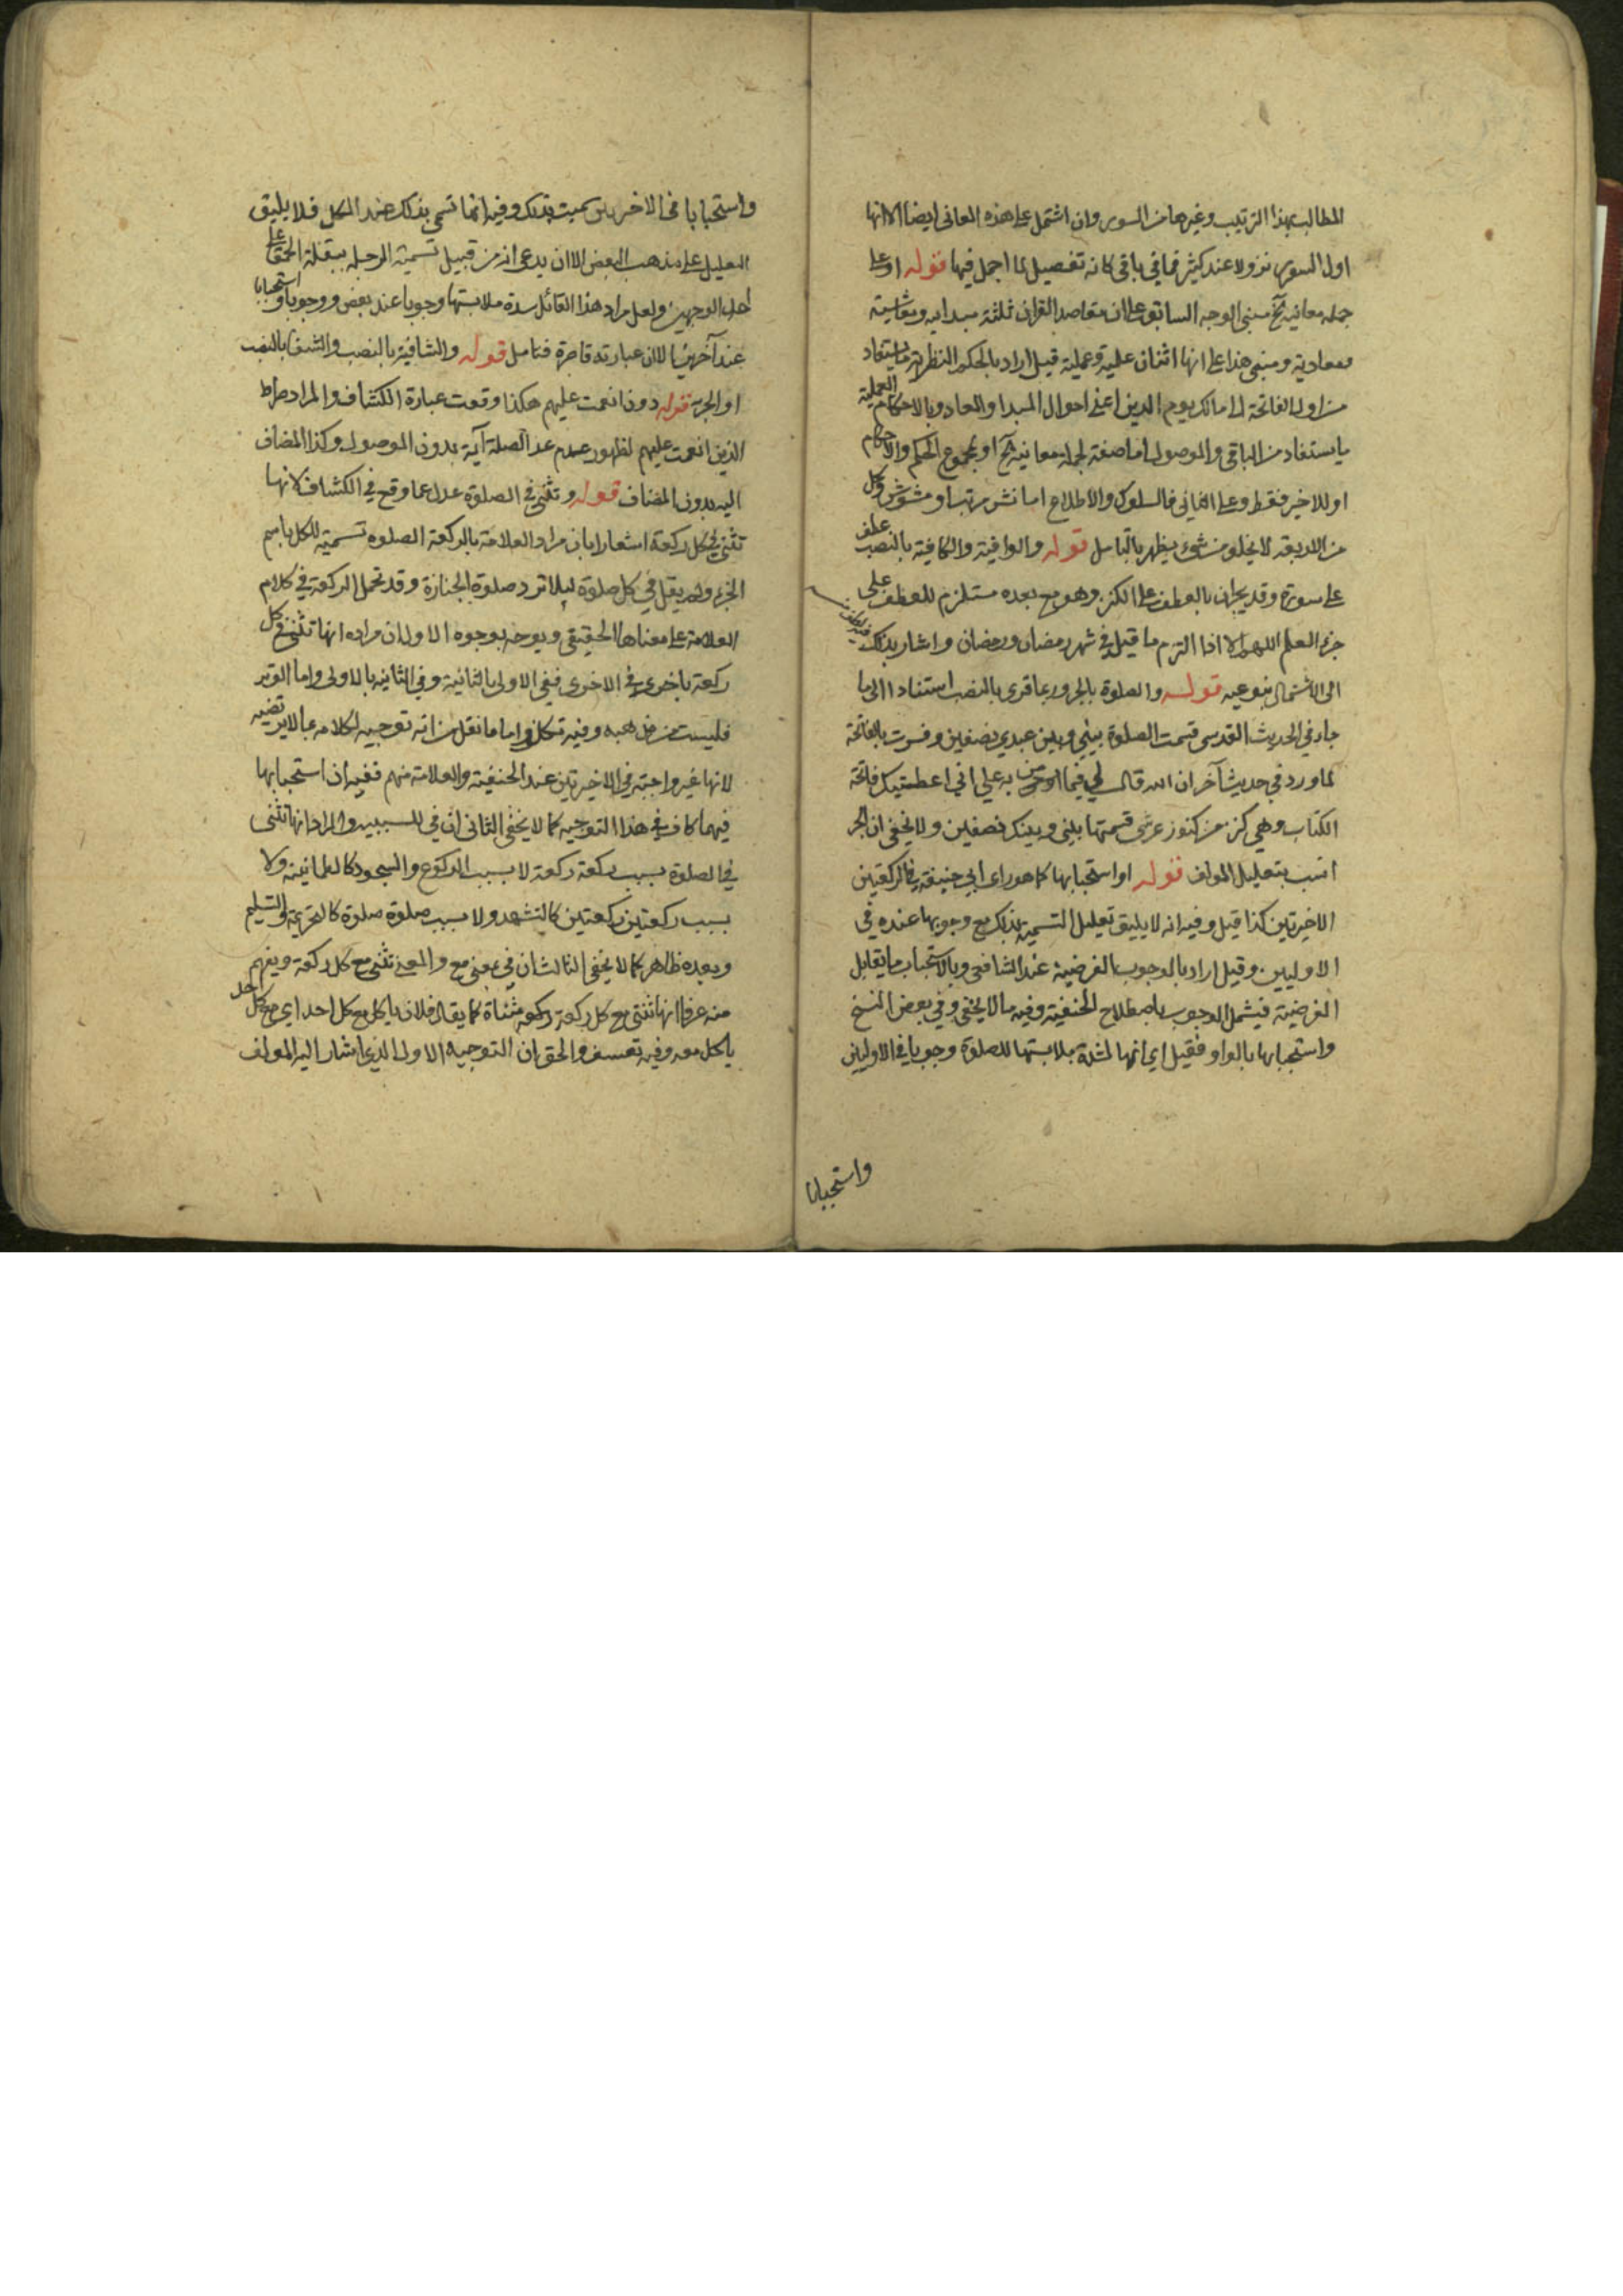 المطالب بهذا الترتيب وغيرها من السور وان اشتمل على هذه المعانى ايضا الا انها
اول السور نزولا عند كثير فما فى باقى كانه تفصيل لما اجمل فيها قوله او على
جملة معانيه آلخ مبنى الوجه السابق على ان مقاصد القران ثلثة مبدايه ومعاشية
ومعادية ومبنى هذا على انها اثنان علمية وعملية قيل اراد بالحكم النظرية ما يستفاد
من اول الفاتحة الى مالك يوم الدين اعنى احوال المبدا والمعاد وبالاحكام العملية
ما يستفاد من الباقى والموصول اما صفة لجملة معانيه آلخ او بمجموع الحكم والاحكام
او للاخير فقط وعلى الثانى فالسلوك والاطلاع اما نشر مرتب او مشوش وكل
من الاربعة لا يخلو من شوئ يظهر بالتامل قوله والوافية والكافية بالنصب عطف
على سورة وقد يجران بالعطف على الكنز وهو مع بعده مستلزم للعطف على
جزء العلم اللهم الا اذا التزم ما قيل فى شهر رمضان ورمضان واشار بذلك
الى الاشتمال بنوعيه قوله والصلوة بالجر وربما قرى بالنصب استنادا الى ما
جاء في الحديث القدسى قسمت الصلوة بيني وبين عبدي نصفين وفسرت بالفاتحة
لما ورد في حديث آخر ان الله قال لي فيما من به علي اني اعطيتك فاتحة
الكتاب وهي كنز من كنوز عرشى قسمتها بيني وبينك نصفين ولا يخفى ان الجر
انسب بتعليل المولف قوله او استحبابها كما هو راى ابي حنيفة فى الركعتين
الاخيرتين كذا قيل وفيه انه لا يليق تعليل التسمية بذلك مع وجوبها عنده في
الاوليين وقيل اراد بالوجوب الفرضية عند الشافعى وبالاستحباب ما يقابل
الفرضية فيشمل الوجوب باصطلاح الحنفية وفيه ما لا يخفى وفي بعض النسخ
واستحبابها بالواو فقيل اي انها لشدة ملابستها للصلوة وجوبا فى الاوليين
واستحبابا
واستحبابا فى الاخريين سميت بذلك وفيه انها تسمى بذلك عند الكل فلا يليق
التعليل على مذهب البعض الا ان يدعى انه من قبيل تسمية الرجله ببقلة الحمقا على
احد الوجهين ولعل مراد هذا القائل شدة ملابستها وجوبا عند بعض ووجوبا واستحبابا
عند آخرين الا ان عبارته قاصرة فتامل قوله والشافية بالنصب والشفا بالنصب
او الجر قوله دون انعمت عليهم هكذا وقعت عبارة الكشاف والمراد صراط
الذين انعمت عليهم لظهور عدم عد الصلة آية بدون الموصول وكذا المضاف
اليه بدون المضاف قوله وتثنى في الصلوة عدل عما وقع في الكشاف لانها
تثنى فى كل ركعة اشعارا بان مراد العلامة بالركعة الصلوه تسمية للكل باسم
الجزء ولم يقل في كل صلوة ليلا ترد صلوة الجنازة وقد تحمل الركعة في كلام
العلامة على معناها الحقيقي ويوجه بوجوه الاول ان مراده انها تثنى فى كل
ركعة باخرى فى الاخرى ففي الاولى بالثانية وفي الثانيه بالاولى واما الوتر
فليست من مذهبه وفيه تكلف واما ما نقل من انه توجيه لكلامه بما لا يرتضيه
لانها غير واجبة في الاخيرتين عند الحنفية والعلامة منهم ففيه ان استحبابها
فيهما كاف في هذا التوجيه كما لا يخفى الثانى ان في للسببيه والمراد انها تثنى
في الصلوة بسبب ركعة ركعة لا بسبب الركوع والسجود كالطمانينة ولا
بسبب ركعتين ركعتين كالتشهد ولا بسبب صلوة صلوة كالتحريمة والتسليم
وبعده ظاهر كما لا يخفى الثالث ان في بمعنى مع والمعنى تثنى مع كل ركعة ويفهم
منه عرفا انها تثنى مع كل ركعة ركعة مثناة كما يقال فلان ياكل مع كل احد اي مع كل احد
ياكل معه وفيه تعسف والحق ان التوجيه الاول الذي اشار اليه المولف